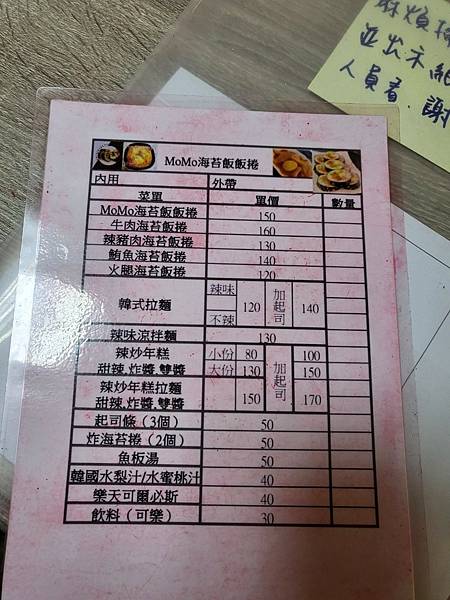 麻煩
並出示紙
人員看.謝
MoMo海苔飯飯捲
內用 外帶
菜單 單價 數量
MoMo海苔飯飯捲 150
牛肉海苔飯飯捲 160
辣豬肉海苔飯飯捲 130
鮪魚海苔飯飯捲 140
火腿海苔飯飯捲 120
韓式拉麵 辣味 不辣 120 加起司 140
辣味涼拌麵 130
辣炒年糕 小份 80 加起司 100
甜辣.炸醬.雙醬 大份 130 150
辣炒年糕拉麵
甜辣.炸醬.雙醬 150 170
起司條（3個） 50
炸海苔捲（2個） 50
魚板湯 50
韓國水梨汁/水蜜桃汁 40
樂天可爾必斯 40
飲料（可樂） 30